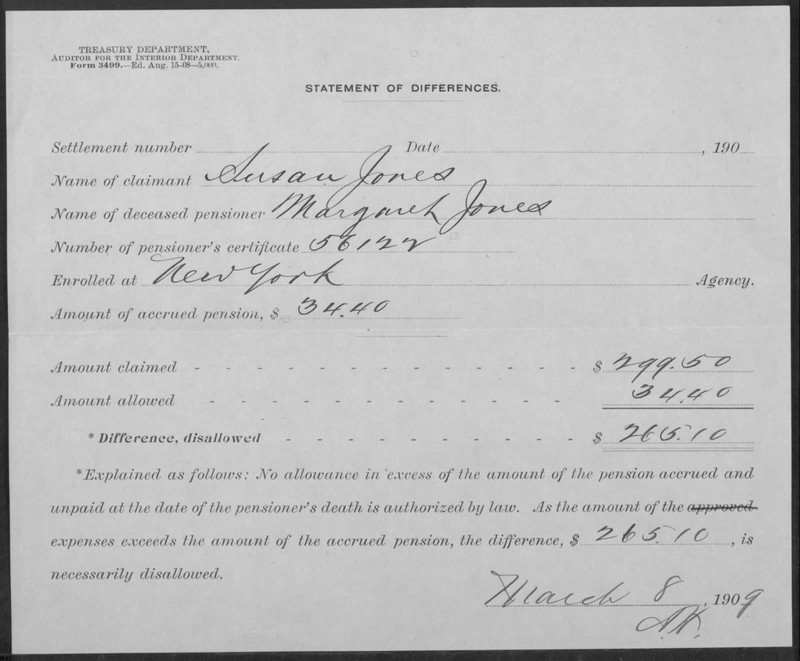 TREASURY DEPARTMENT,
AUDITOR FOR THE INTERIOR DEPARTMENT.
Form 3499.—Ed. Aug. 15-08—5,000.
STATEMENT OF DIFFERENCES.
Settlement number Date , 190
Name of claimant Susan Jones
Name of deceased pensioner Margaret Jones
Number of pensioner's certificate 56122
Enrolled at New York Agency.
Amount of accrued pension, $ 34.40
Amount claimed - - - - - - - - - - - - - - $ 299.50
Amount allowed - - - - - - - - - - - - - 34.40
* Difference, disallowed - - - - - - - - - - - $ 265.10
*Explained as follows: No allowance in excess of the amount of the pension accrued and
unpaid at the date of the pensioner's death is authorized by law. As the amount of the approved
expenses exceeds the amount of the accrued pension, the difference, $ 265.10 , is
necessarily disallowed.
March 8 , 1909
A.K.